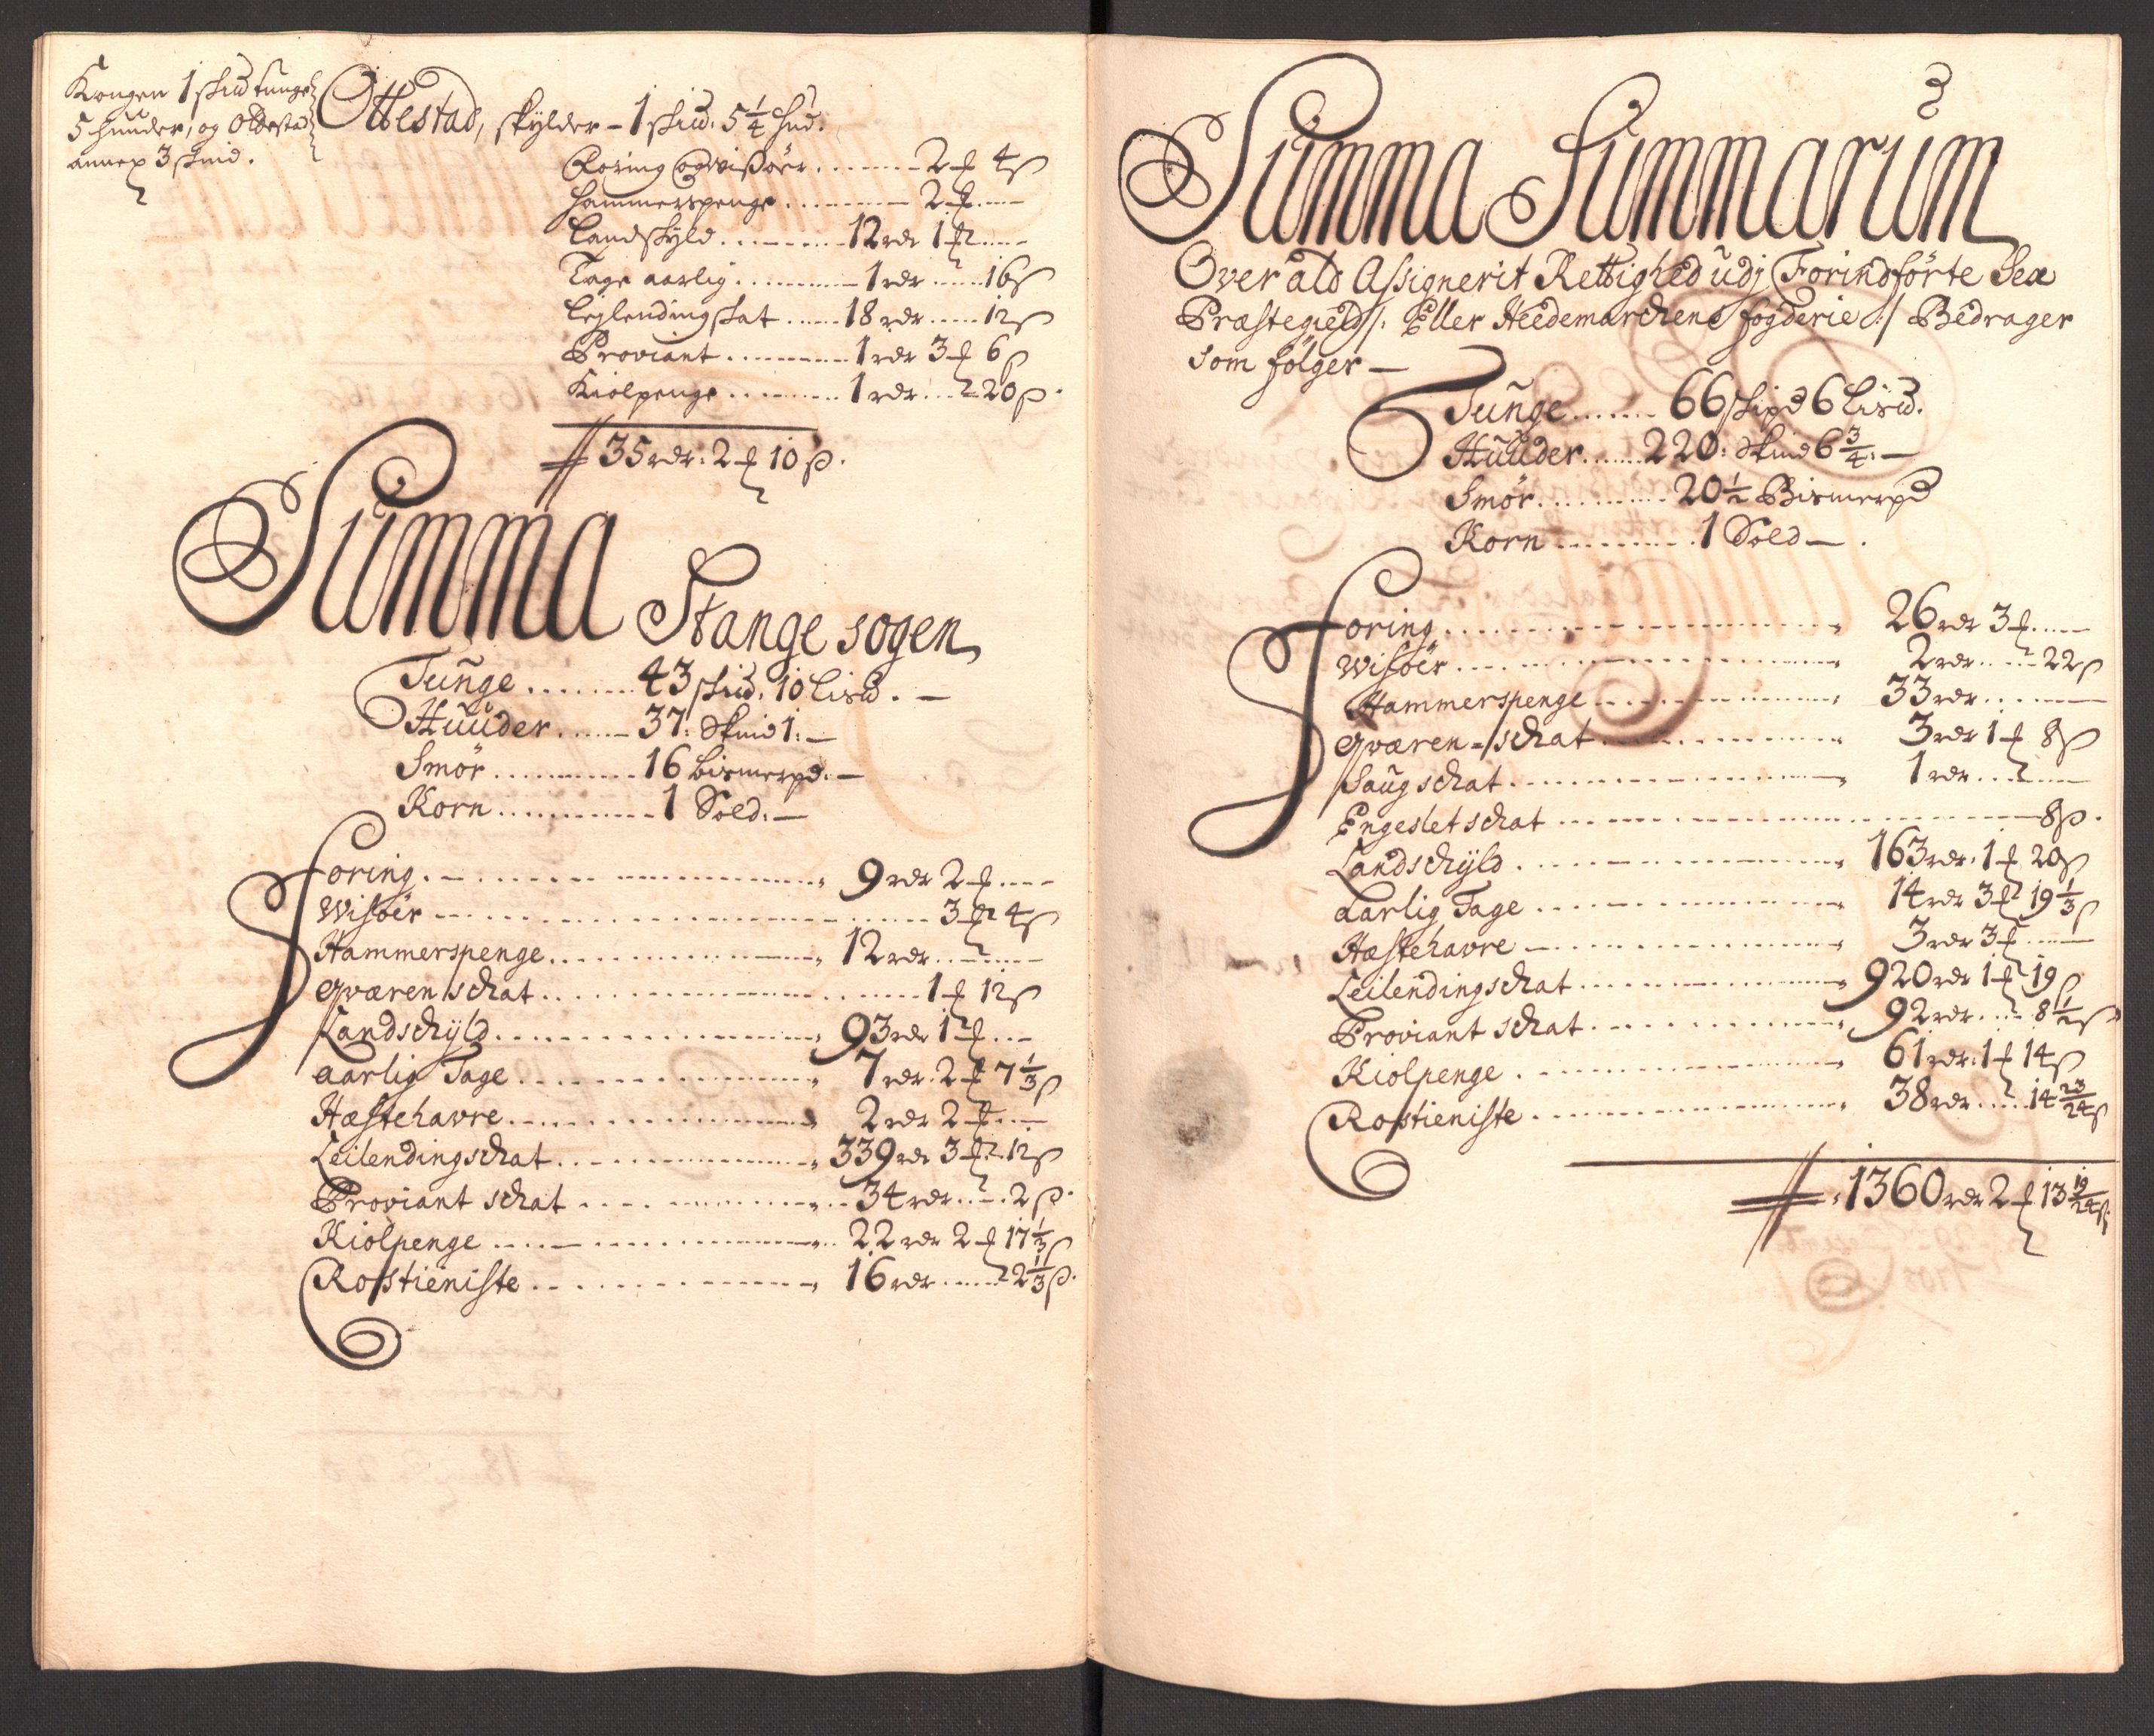 Kongen 1 skud tunge
5 huuder, og Oldestad
annex 3 skind.
Ottestad, skylder – 1 skud: 5 1/4 hud.
Foring og wisöer ....... 2 ƒ 4 ß
Hammerspenge ....... 2 ƒ ....
Landskyld ....... 12 rdr 1 ƒ ....
Tage aarlig ....... 1 rdr .... 16 ß
Lejlendingskat ..... 18 rdr .... 12 ß
Proviant ....... 1 rdr 3 ƒ 6 ß
Kiolpenge ....... 1 rdr .... 20 ß.
35 rdr: 2 ƒ 10 ß.
Summa Stange sogen
Tunge ....... 43 skud: 10 Lisd. –
Huuder ...... 37: Skind 1: –
Smör ....... 16 bismerpd. –
Korn ....... 1 Sold: –
Foring ....... 9 rdr 2 ƒ ....
Wisöer ....... 3 ƒ 4 ß
Hammerspenge ....... 12 rdr ....
Qværen schat ....... 1 ƒ 12 ß
Landschÿld ....... 93 rdr 1 ƒ ....
Aarlig Tage ....... 7 rdr. 2 ƒ 7 1/3 ß
Hæstehavre ....... 2 rdr 2 ƒ ....
Leilendingschat ....... 339 rdr 3 ƒ 12 ß
Proviant schat ....... 34 rdr .... 2 ß.
Kiolpenge ....... 22 rdr 2 ƒ 17 1/3 ß
Rosstieniste ....... 16 rdr .... 2 1/3 ß.
3
Summa Summarum
Over ald Assignerit Rettighed udj Forindförte Sex
Præstegield /: Eller Heedemarchens fogderie :/ Bedrager
som fölger –
Tunge ....... 66 skipd 6 Lisd.
Huuder ....... 220: Skind 6 3/4: –
Smör ....... 20 1/2 Bismerpd
Korn ....... 1 Sold – .
Foring ....... 26 rdr 3 ƒ ....
Wisöer ....... 2 rdr .... 22 ß
Hammerspenge ....... 33 rdr ....
Qværen-schat ....... 3 rdr 1 ƒ 8 ß
Saug schat ....... 1 rdr ....
Engeslet schat ....... 8 ß.
Landschÿld ....... 163 rdr. 1 ƒ 20 ß
Aarlig Tage ....... 14 rdr 3 ƒ 19 1/3 ß
Hæstehavre ....... 3 rdr 3 ƒ ....
Leilendingschat ....... 920 rdr 1 ƒ 19 ß
Proviant schat ....... 92 rdr .... 8 1/2 ß
Kiolpenge ....... 61 rdr. 1 ƒ 14 ß
Rosstieniste ....... 38 rdr .... 14 23/24 ß
1360 rdr 2 ƒ 13 19/24 ß.